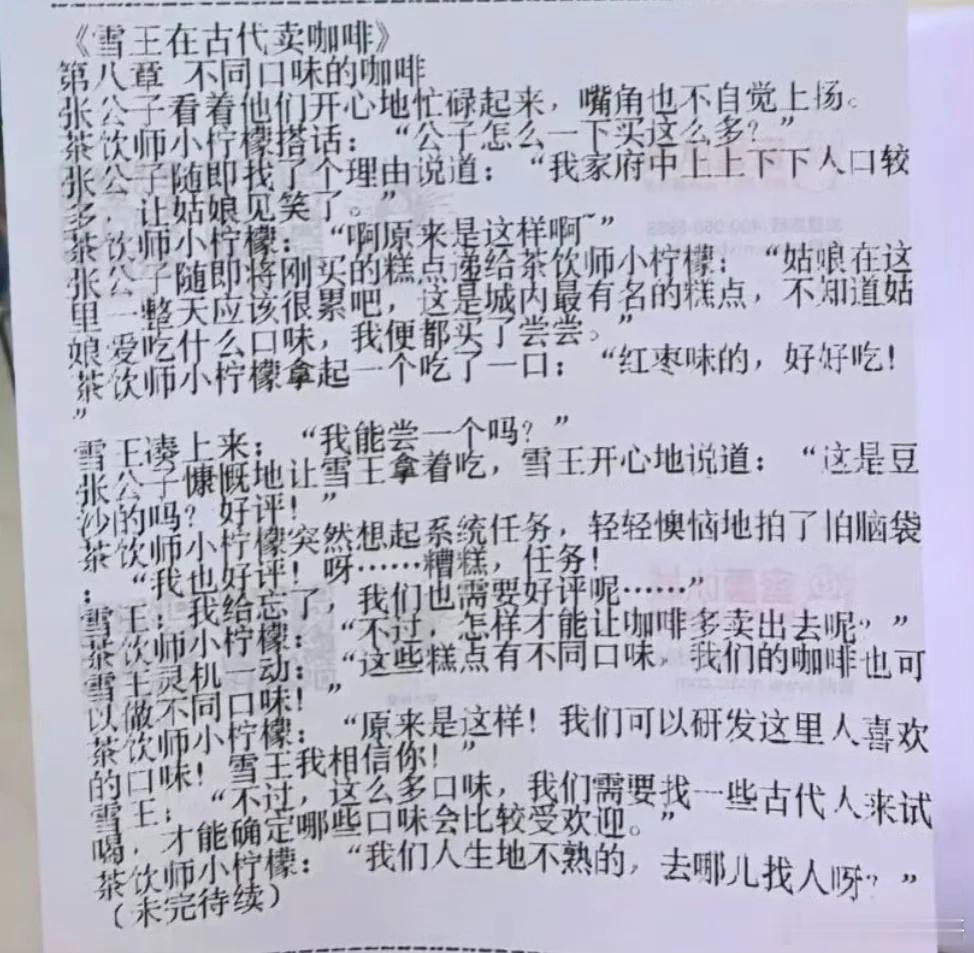 《雪王在古代卖咖啡》
第八章 不同口味的咖啡
张公子看着他们开心地忙碌起来，嘴角也不自觉上扬。
茶饮师小柠檬搭话：“公子怎么一下买这么多？”
张公子随即找了个理由说道：“我家府中上上下下人口较
多，让姑娘见笑了。”
茶饮师小柠檬：“啊原来是这样啊~”
张公子随即将刚买的糕点递给茶饮师小柠檬：“姑娘在这
里一整天应该很累吧，这是城内最有名的糕点，不知道姑
娘爱吃什么口味，我便都买了尝尝。”
茶饮师小柠檬拿起一个吃了一口：“红枣味的，好好吃！
”
雪王凑上来：“我能尝一个吗？”
张公子慷慨地让雪王拿着吃，雪王开心地说道：“这是豆
沙的吗？好评！”
茶饮师小柠檬突然想起系统任务，轻轻懊恼地拍了怕脑袋
：“我也好评！呀……糟糕，任务！
雪王：我给忘了，我们也需要好评呢……”
茶饮师小柠檬：“不过，怎样才能让咖啡多卖出去呢？”
雪王灵机一动：“这些糕点有不同口味，我们的咖啡也可
以做不同口味！”
茶饮师小柠檬：“原来是这样！我们可以研发这里人喜欢
的口味！雪王我相信你！”
雪王：“不过，这么多口味，我们需要找一些古代人来试
喝，才能确定哪些口味会比较受欢迎。”
茶饮师小柠檬：“我们人生地不熟的，去哪儿找人呀？”
（未完待续）